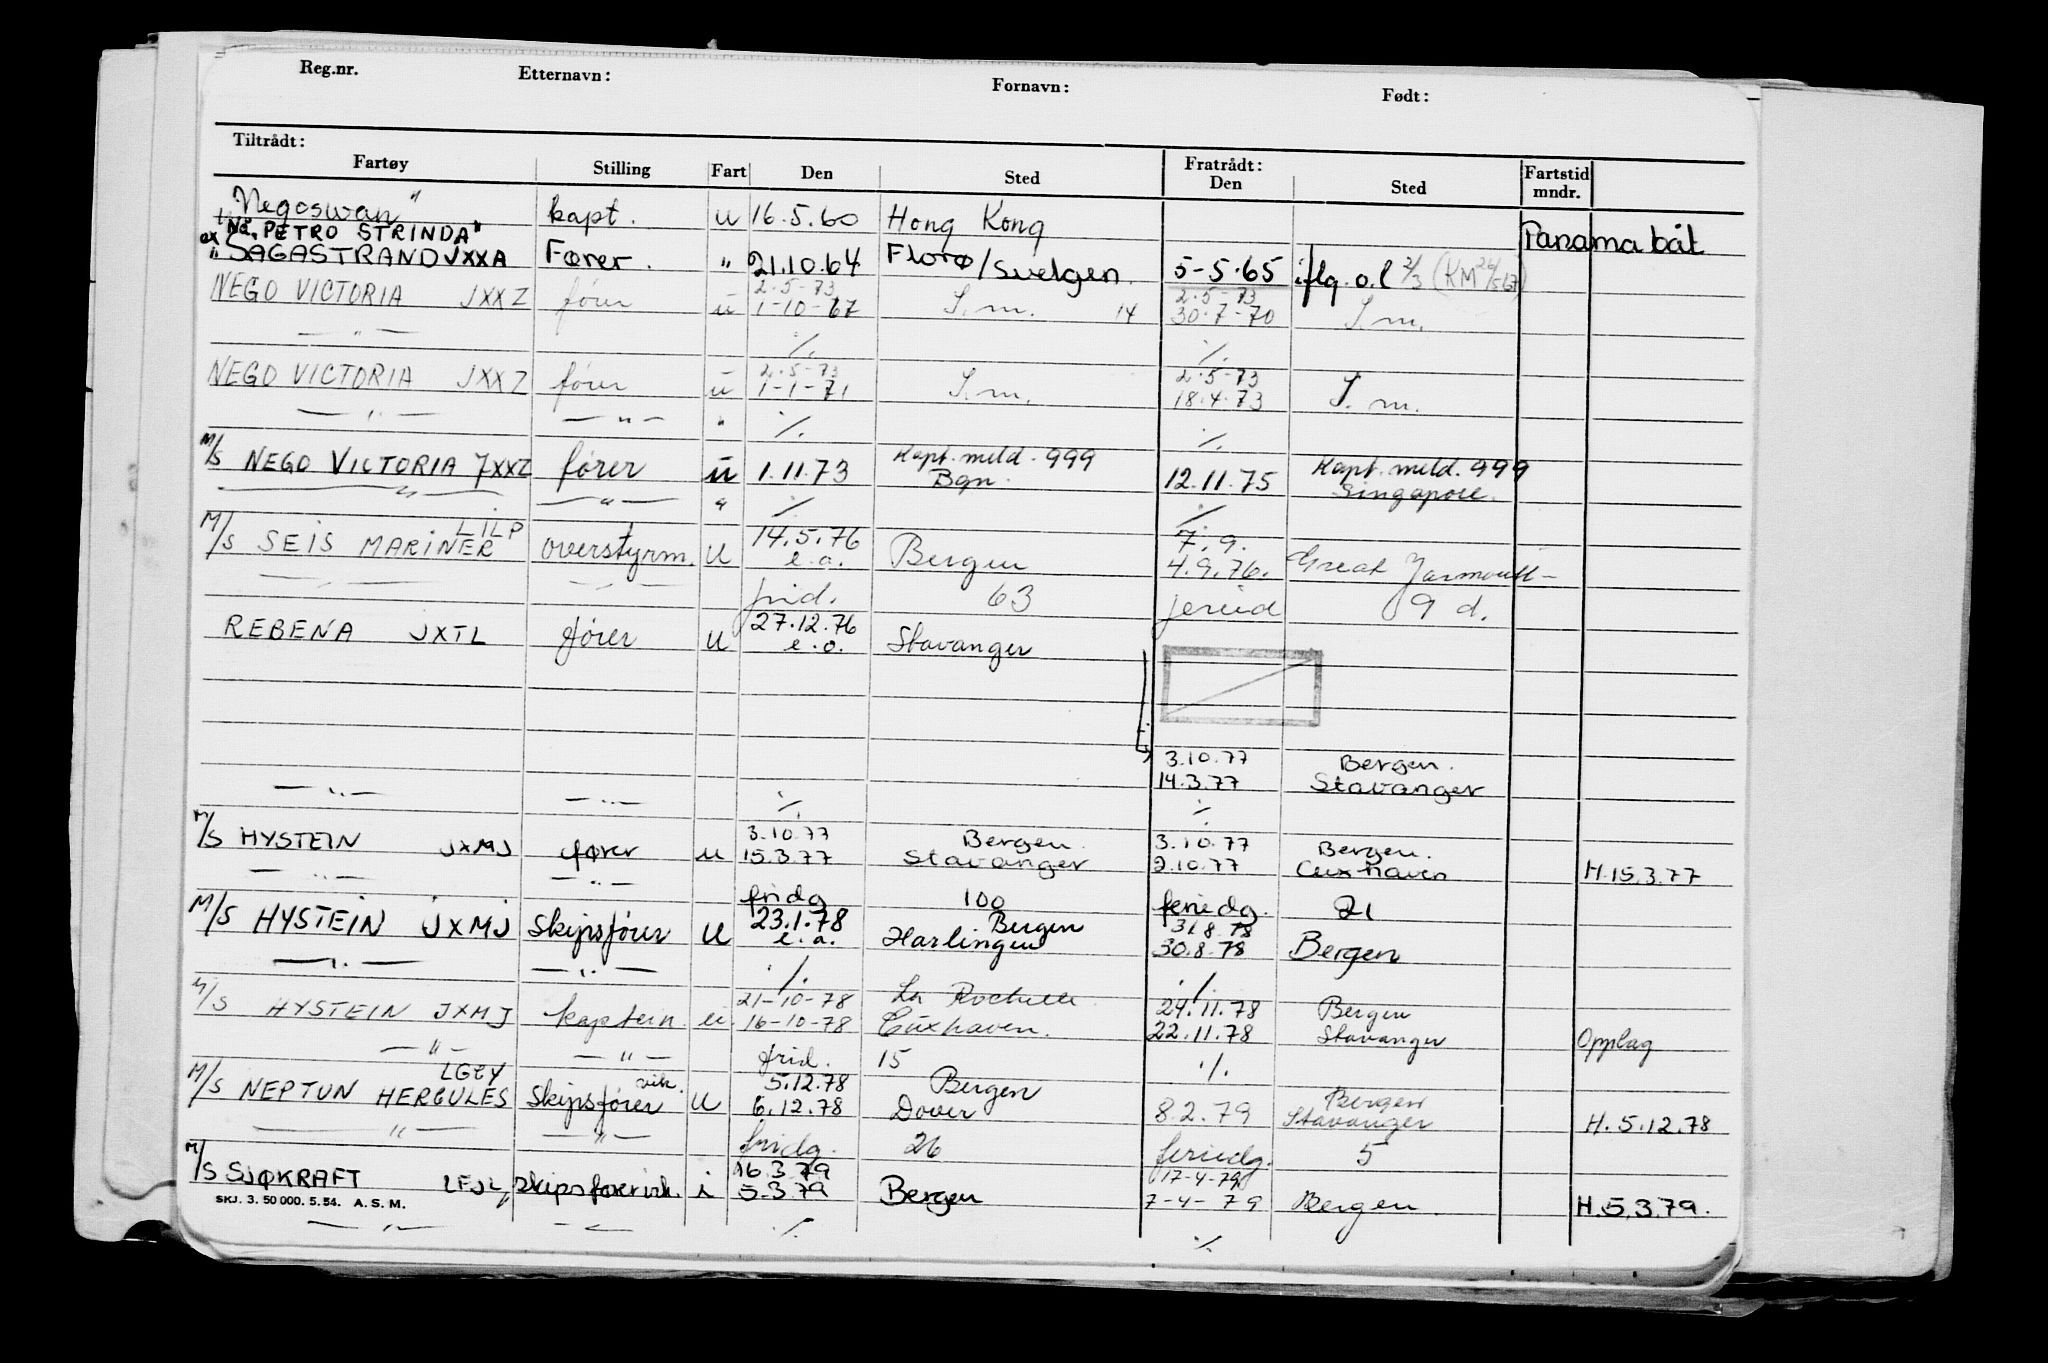 Reg.nr. Etternavn: Fornavn: Født:
Tiltrådt: Fratrådt: Fartstid
Fartøy Stilling Fart Den Sted Den Sted mndr.
"Negoswan" kapt. u 16.5.60 Hong Kong Panama båt
Nå "PETRO STRINDA"
ex "SAGASTRAND JXXA Fører. " 21.10.64 Florø/Svelgen 5-5-65 iflg. o.l 2/3 (KM 26/5-67)
2-5-73 2-5-73
NEGO VICTORIA JXXZ fører u 1-10-67 S.m. 14 30-7-70 S.m.
— " — ./. ./.
2-5-73 2-5-73
NEGO VICTORIA JXXZ fører u 1-1-71 S.m. 18.4.73 S.m.
— " — — " — " ./. ./.
Kapt. meld. 999 Kapt. meld. 999
M/S NEGO VICTORIA JXXZ fører u 1.11.73 Bgn. 12.11.75 Singapore.
— " — — " — " ./. ./.
LILP 14.5.76 7.9.
M/S SEIS MARINER overstyrm. U e.a. Bergen 4.9.76. Great Yarmouth
— " — — " — frid. 63 feried 9 d.
27.12.76
REBENA JXTL fører U e.o. Stavanger
3.10.77 Bergen.
14.3.77 Stavanger
— " — — " — ./. ./.
3.10.77 Bergen. 3.10.77 Bergen.
M/S HYSTEIN JXMJ fører u 15.3.77 Stavanger 2.10.77 Cuxhaven H.15.3.77
— " — — " — fridg 100 feriedg. 21
23.1.78 Bergen 31.8.78
M/S HYSTEIN JXMJ Skipsfører U e.a. Harlingen 30.8.78 Bergen
— " — — " — ./. ./.
21-10-78 La Rochelle 24.11.78 Bergen
M/S HYSTEIN JXMJ kaptein u 16-10-78 Cuxhaven. 22.11.78 Stavanger Opplag
— " — — " — frid. 15 ./.
vik. 5.12.78 Bergen Bergen
M/S NEPTUN HERCULES Skipsfører U 6.12.78 Dover 8.2.79 Stavanger H. 5.12.78
— " — — " — fridg. 26 feriedg. 5
16.3.79 17-4-79
M/S SJØKRAFT LFJL Skipsfører vik. i 5.3.79 Bergen 7-4-79 Bergen. H.5.3.79.
SKJ. 3. 50 000. 5.54. A.S.M.
— " — — " — ./. ./.